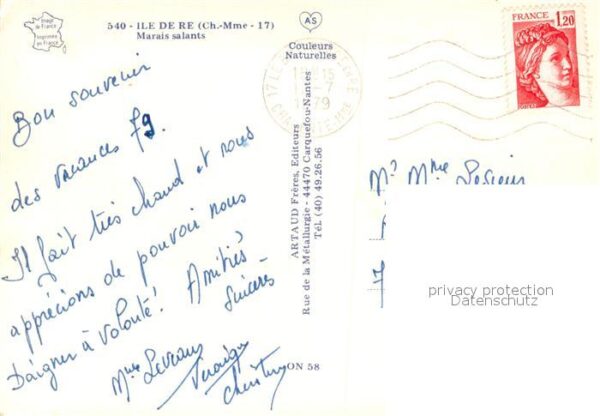 Imagé de France
Imprimée en France
540 - ILE DE RE (Ch.-Mme - 17)
Marais salants
AS
Couleurs
Naturelles
FRANCE
1,20
15
7
79
Bon souvenir
des vacances 79.
Il fait très chaud et nous
apprécions de pouvoir nous
baigner à volonté! Amitiés
sincères
Mme
Véronique
ARTAUD Frères, Editeurs
Rue de la Métallurgie - 44470 Carquefou-Nantes
Tél. (40) 49.26.56
ON 58
Mme
privacy protection
Datenschutz